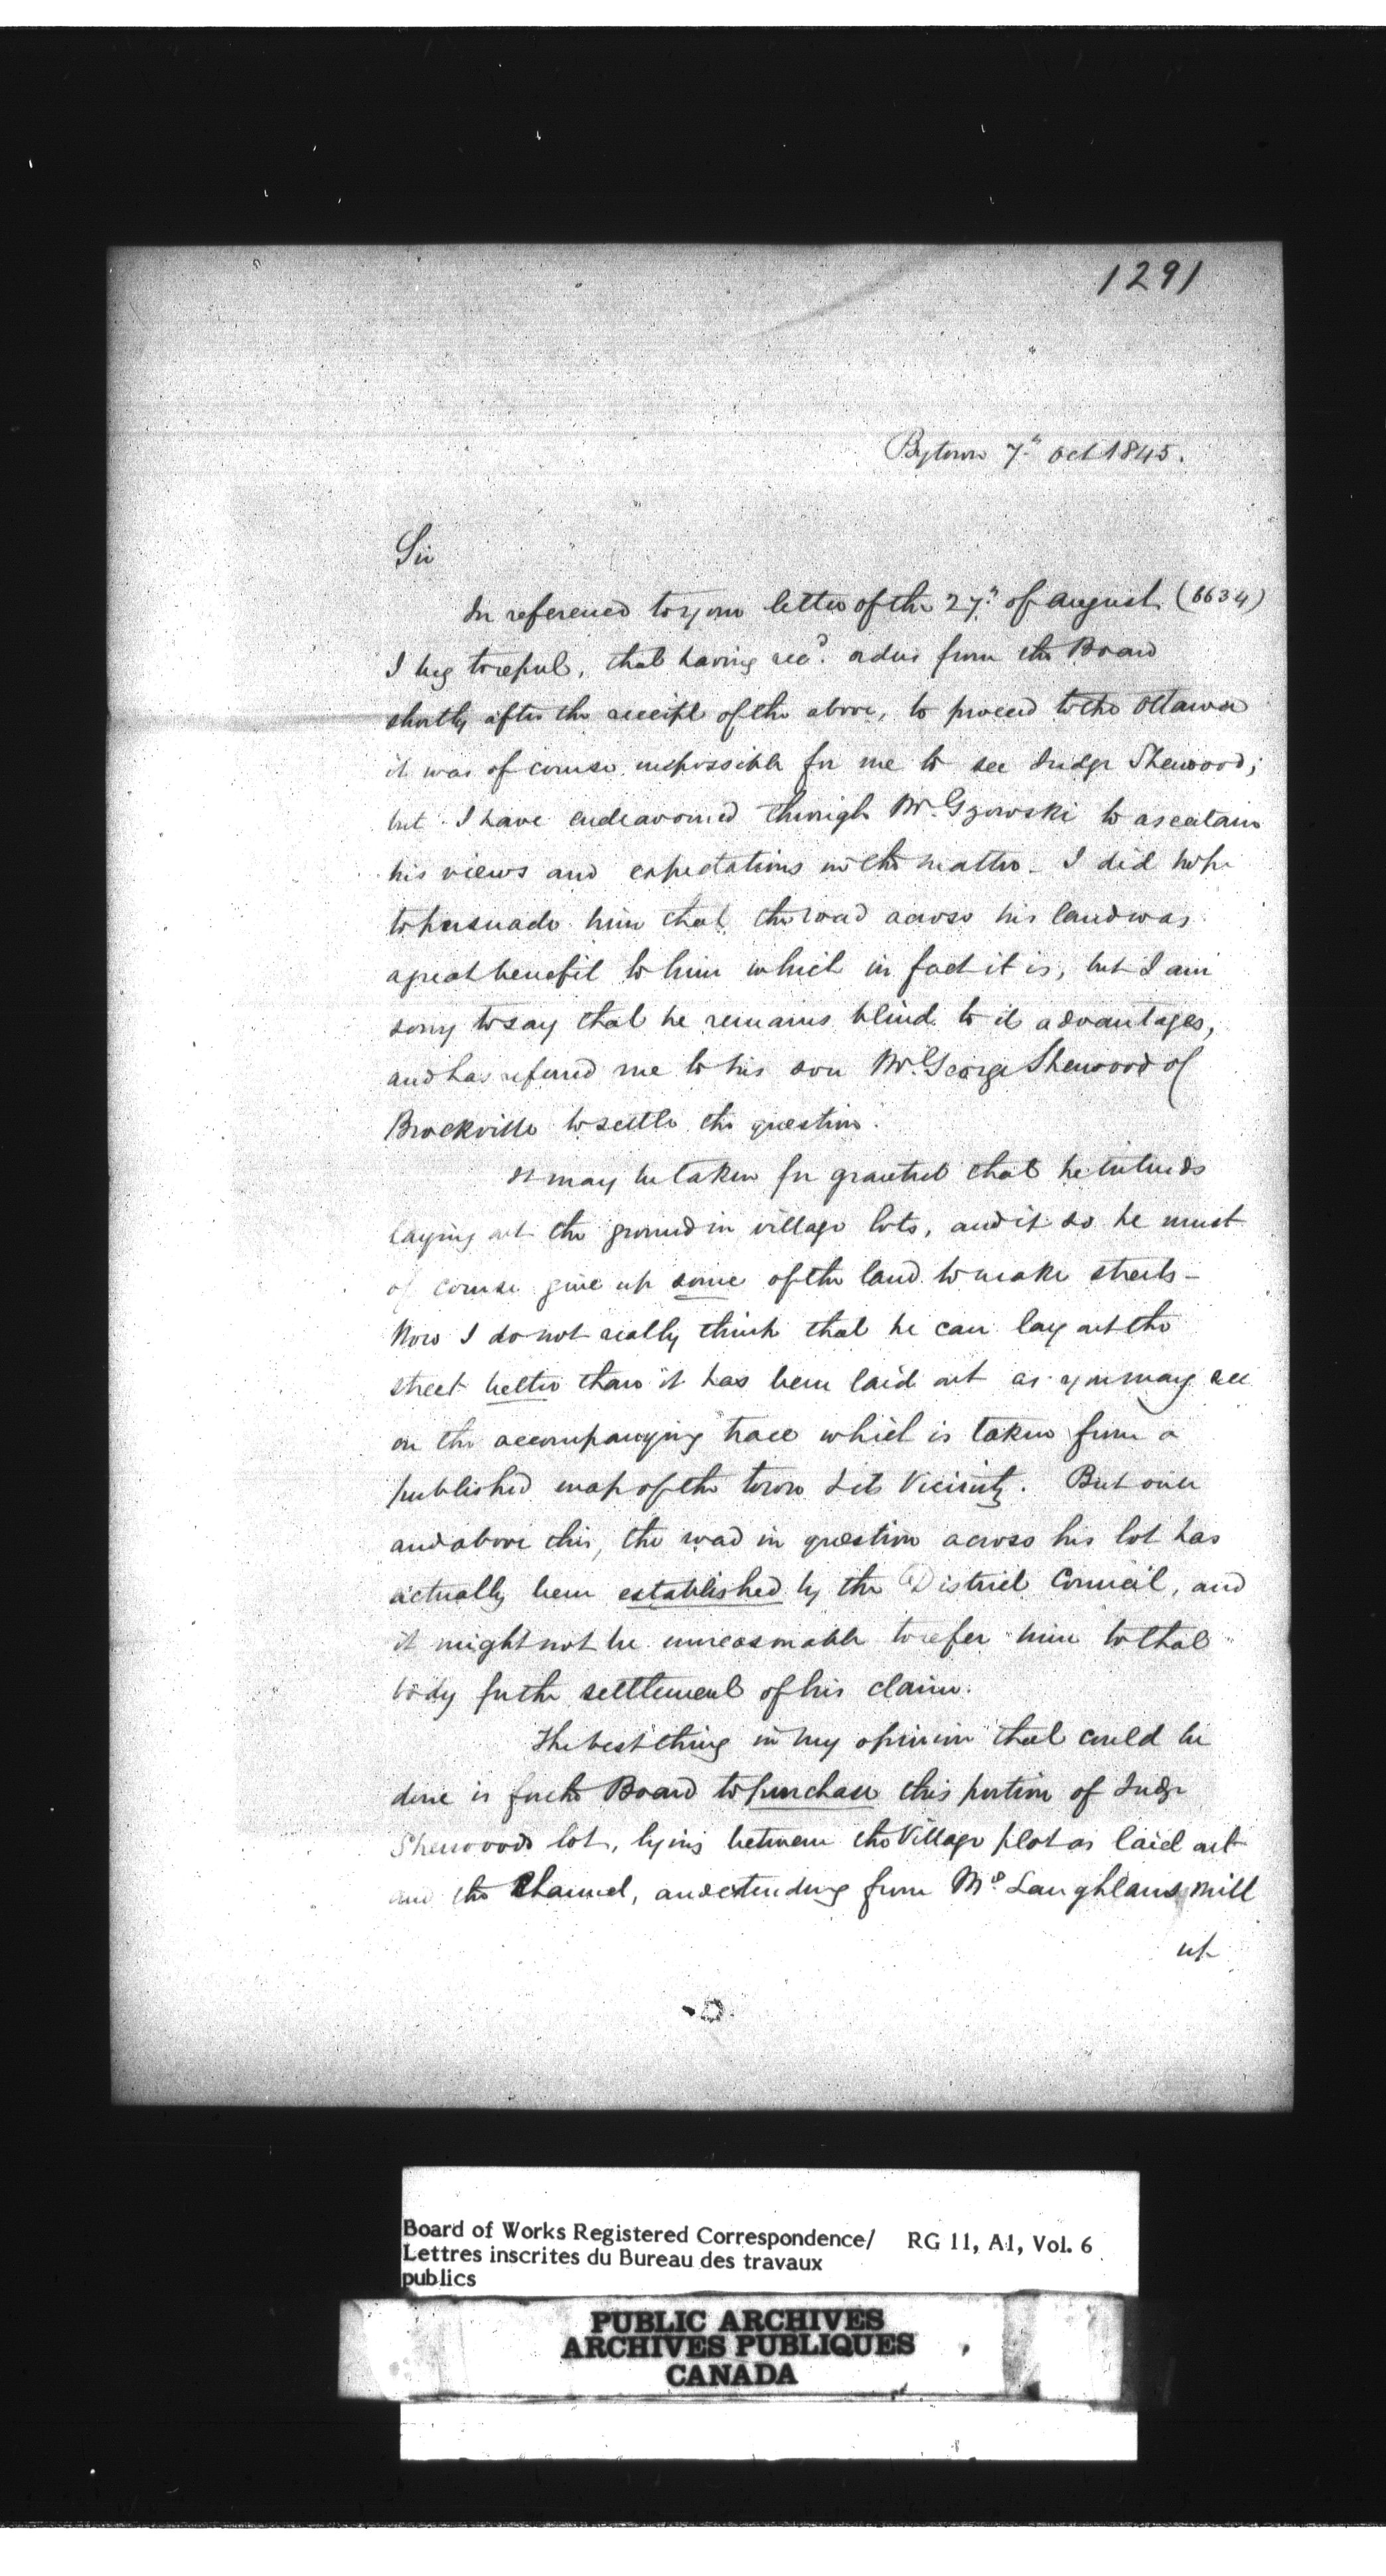 1291
Bytown 7th Oct 1845.
Sir
In reference to your letter of the 27th of August (6634)
I beg to report, that having recd. orders from the Board
shortly after the receipt of the above, to proceed to the Ottawa
it was of course impossible for me to see Judge Sherwood;
but I have endeavoured through Mr. Gzowski to ascertain
his views and expectations in the matter - I did hope
to persuade him that the road across his land was
a great benefit to him which in fact it is, but I am
sorry to say that he remains blind to it advantages,
and has referred me to his son Mr. George Sherwood of
Brockville to settle the question.
It may be taken for granted that he intends
laying out the ground in village lots, and if so he must
of course give up some of the land to make streets -
Now I do not really think that he can lay out the
street better than it has been laid out as you may see
on the accompanying trace which is taken from a
published map of the town & its Vicinity. But over
and above this, the road in question across his lot has
actually been established by the District Council, and
it might not be unreasonable to refer him to that
body for the settlement of his claim.
The best thing in my opinion that could be
done is for the Board to purchase this portion of Judge
Sherwoods lot, lying between the Village plot as laid out
and the Channel, and extending from Mc Laughlans Mill
up
Board of Works Registered Correspondence/ RG 11, A1, Vol. 6
Lettres inscrites du Bureau des travaux
publics
PUBLIC ARCHIVES
ARCHIVES PUBLIQUES
CANADA